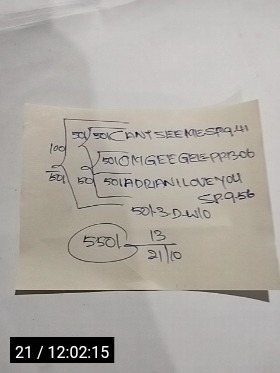 50 50 CANTSEEMESP.9.41
100
50 OMGEEGEE15-PP1306
50 50 50 ADRIANILOVEYOU
SP.9.56
50 3-D-W/O
550 13
21/10
21 / 12:02:15